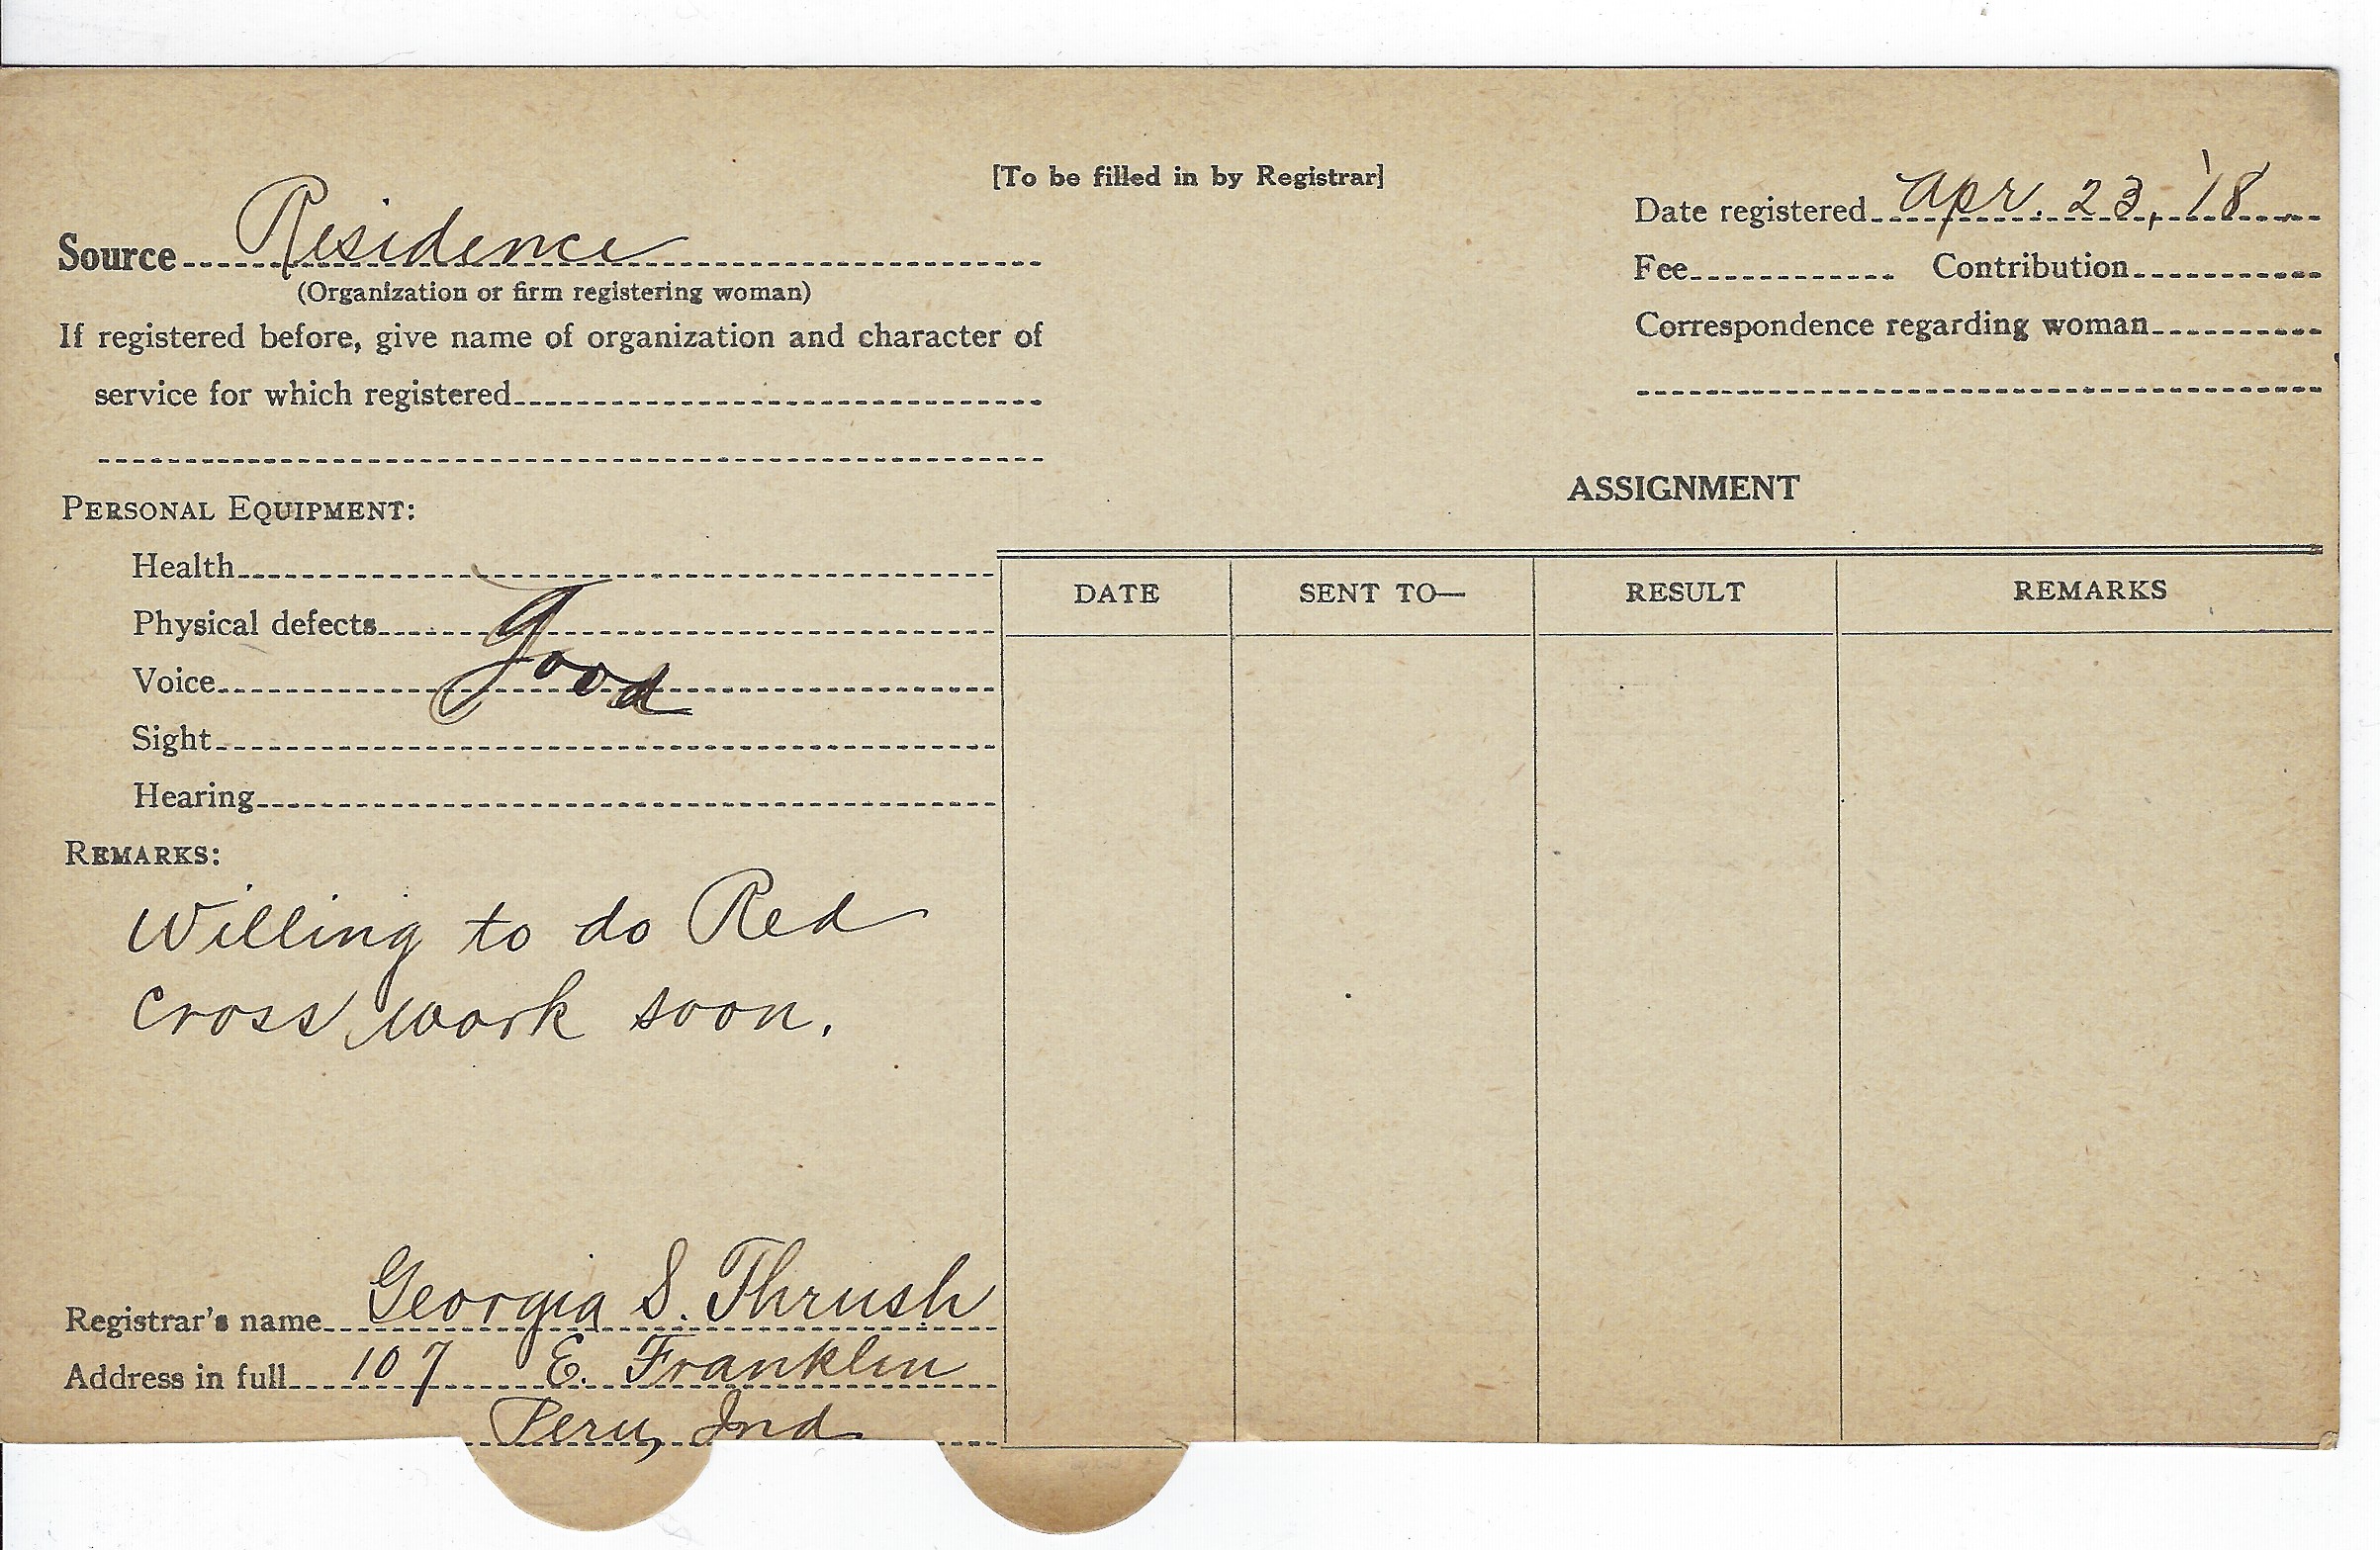 [To be filled in by Registrar]
Source Residence
(Organization or firm registering woman)
If registered before, give name of organization and character of
service for which registered
Date registered Apr. 23, '18
Fee Contribution
Correspondence regarding woman
PERSONAL EQUIPMENT:
Health
Physical defects
Good
Voice
Sight
Hearing
REMARKS:
Willing to do Red
Cross work soon.
Registrar's name Georgia S. Thrush
Address in full 107 E. Franklin
Peru, Ind
ASSIGNMENT
DATE SENT TO— RESULT REMARKS